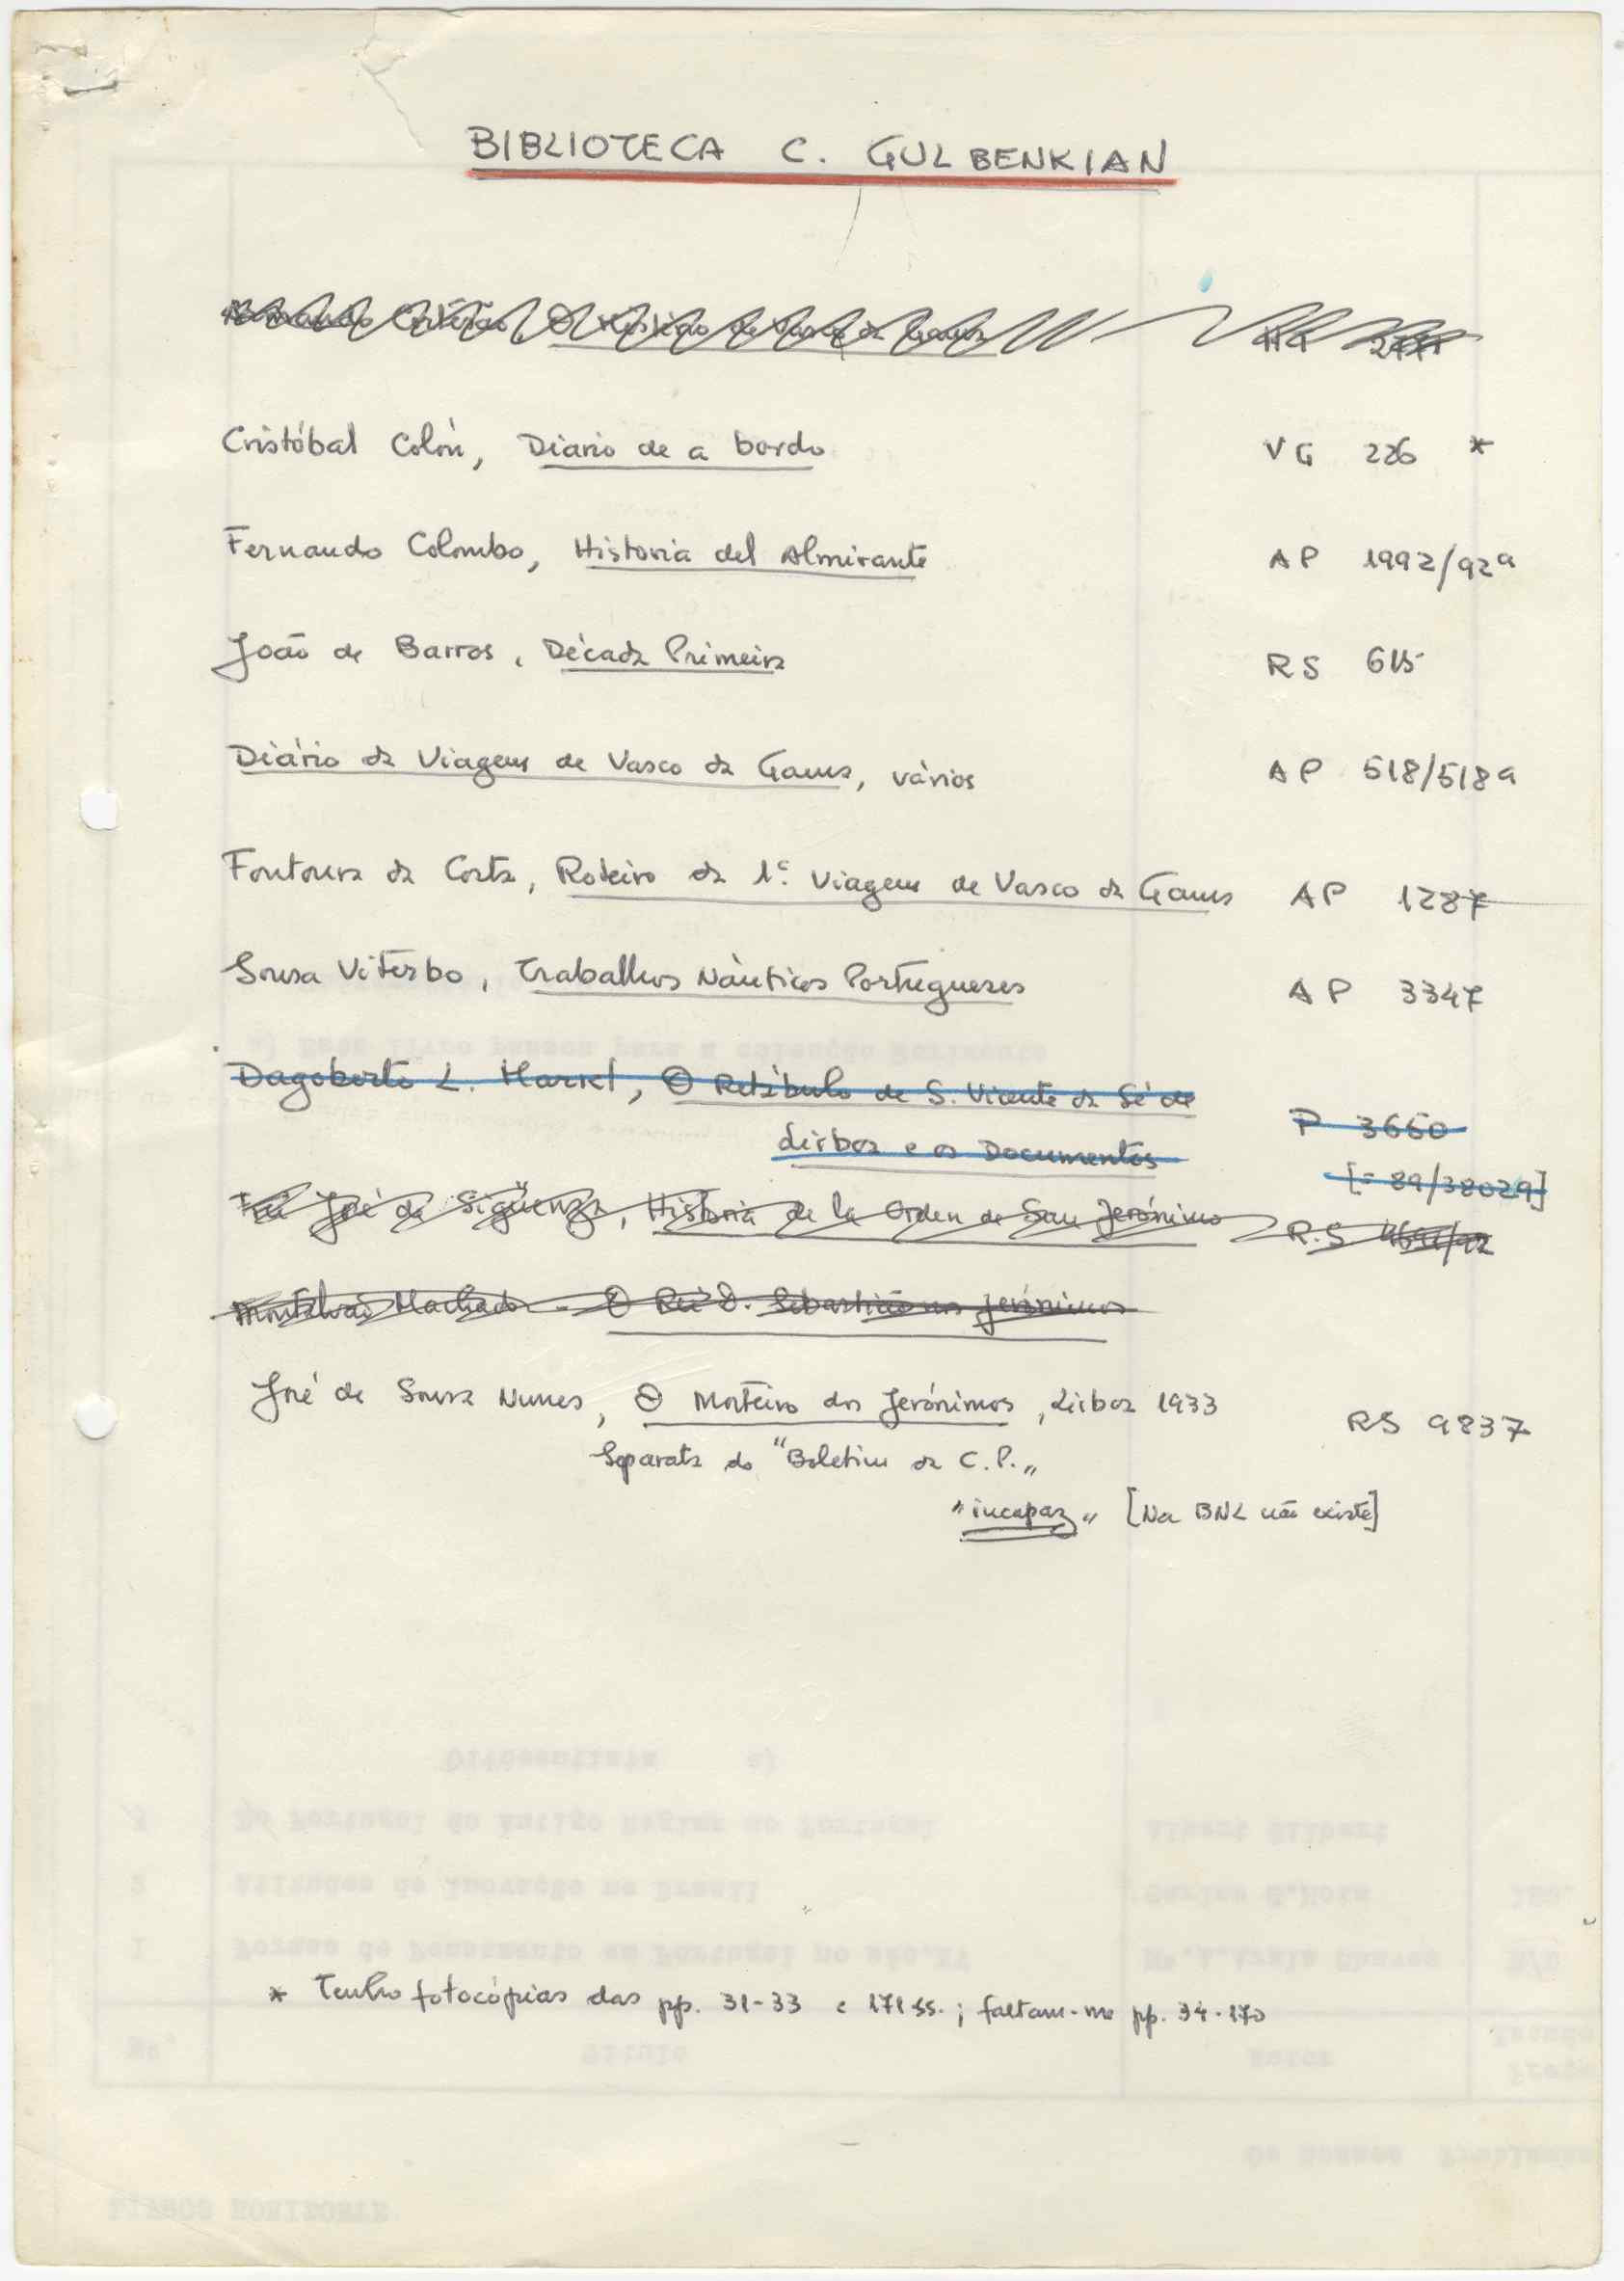 BIBLIOTECA C. GULBENKIAN
Armando Cortesão, O Mistério de Vasco da Gama
Cristóbal Colón, Diario de a bordo VG 226 *
Fernando Colombo, Historia del Almirante AP 1992/92a
João de Barros, Década Primeira RS 615
Diário da Viagem de Vasco da Gama, vários AP 518/518a
Fontoura da Costa, Roteiro da 1ª. Viagem de Vasco da Gama AP 1287
Sousa Viterbo, Trabalhos Náuticos Portugueses AP 3347
Dagoberto L. Markl, O Retábulo de S. Vicente da Sé de
Lisboa e os Documentos P 3650
[= 89/38029]
Frei José de Sigüenza, Historia de la Orden de San Jerónimo R.S
Montalvão Machado - O Rei D. Sebastião nos Jerónimos
José de Sousa Nunes, O Mosteiro dos Jerónimos, Lisboa 1933 RS 9837
Separata do "Boletim da C.P."
"incapaz" [Na BNL não existe]
* Tenho fotocópias das pp. 31-33 e 171 ss.; faltam-me pp. 34-170